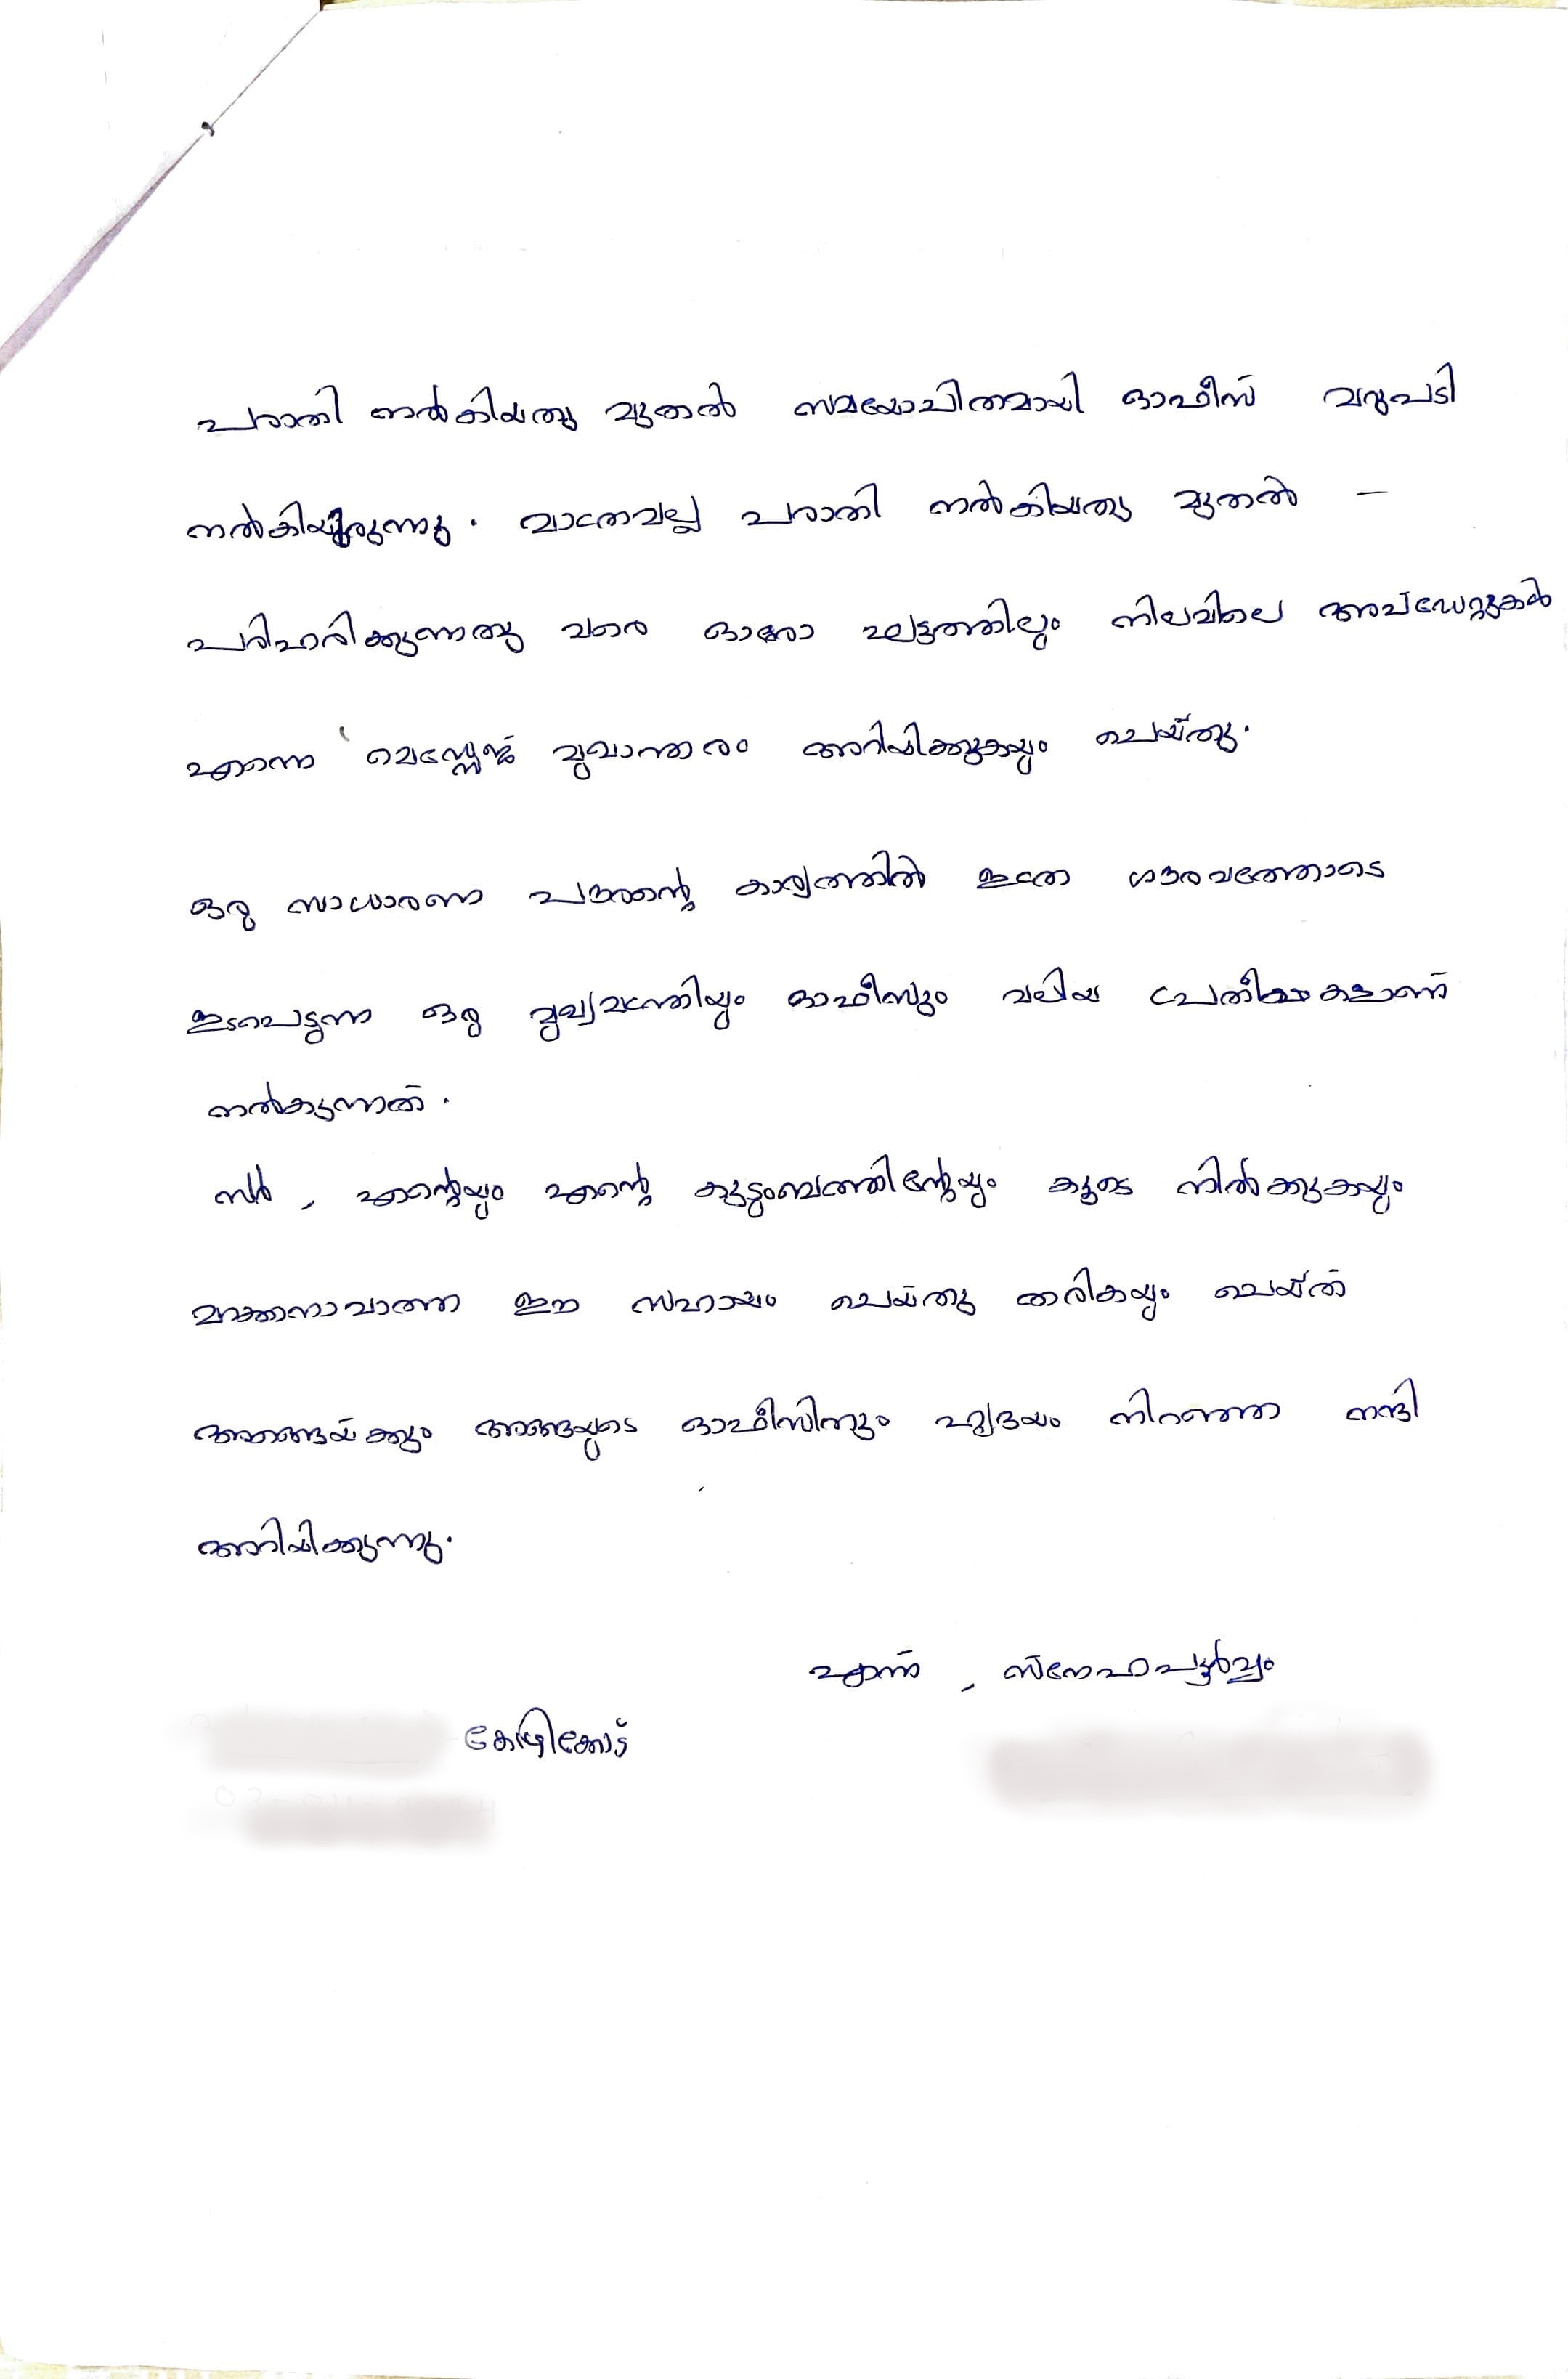 പരാതി നൽകിയതു മുതൽ സമയോചിതമായി ഓഫീസ് മറുപടി
നൽകിയിരുന്നു. മാത്രമല്ല പരാതി നൽകിയതു മുതൽ -
പരിഹരിക്കുന്നതു വരെ ഓരോ ഘട്ടത്തിലും നിലവിലെ അപ്ഡേറ്റുകൾ
എന്നെ മെസ്സേജ് മുഖാന്തരം അറിയിക്കുകയും ചെയ്തു.
ഒരു സാധാരണ പൗരന്റെ കാര്യത്തിൽ ഇത്ര ഗൗരവത്തോടെ
ഇടപെടുന്ന ഒരു മുഖ്യമന്ത്രിയും ഓഫീസും വലിയ പ്രതീക്ഷകളാണ്
നൽകുന്നത്.
സർ, എന്റെയും എന്റെ കുടുംബത്തിന്റേയും കൂടെ നിൽക്കുകയും
മറക്കാനാവാത്ത ഈ സഹായം ചെയ്തു തരികയും ചെയ്ത
അങ്ങയ്ക്കും അങ്ങയുടെ ഓഫീസിനും ഹൃദയം നിറഞ്ഞ നന്ദി
അറിയിക്കുന്നു.
എന്ന്, സ്നേഹപൂർവ്വം
കോഴിക്കോട്